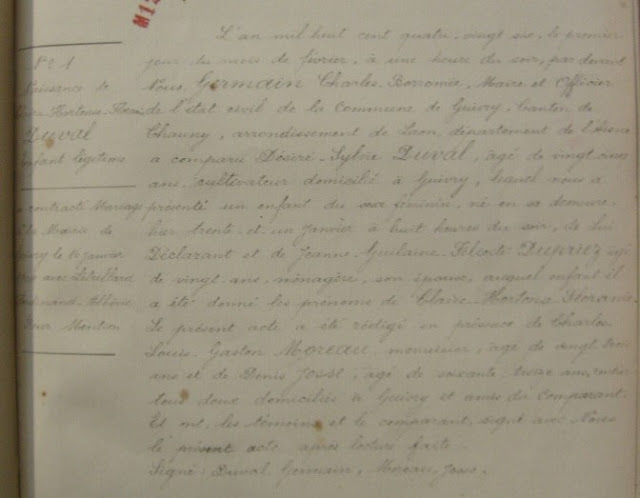 M12
L'an mil huit cent quatre-vingt six, le premier
jour du mois de février, à une heure du soir, par devant
Nous, Germain Charles Borromée, Maire et Officier
de l'état civil de la Commune de Guivry, Canton de
Chauny, arrondissement de Laon, département de l'Aisne
a comparu Désiré-Sylvie Duval, agé de vingt
ans, cultivateur domicilié à Guivry, lequel nous a
présenté un enfant du sexe féminin, né en sa demeure
hier trente-et-un Janvier à huit heures du soir, de lui
Déclarant et de Jeanne-Guilaine-Félicité
de vingt ans, ménagère, son épouse, auquel enfant il
a été donné les prénoms de Claire-Hortense
Le présent acte a été rédigé en présence de Charles
Louis Gaston Moreau, menuisier, agé de vingt trois
ans et de Denis Josse, agé de soixante treize ans, rentier
tous deux domiciliés à Guivry et amis du Comparant.
Et ont, les témoins et le comparant, signé avec Nous
le présent acte après lecture faite.
Signé: Duval, Germain, Moreau, Josse.
N° 1
Naissance de
Claire-Hortense
Duval
enfant légitime
a contracté Mariage
à la Mairie de
Guivry le Janvier
avec
Ferdinand
Pour Mention